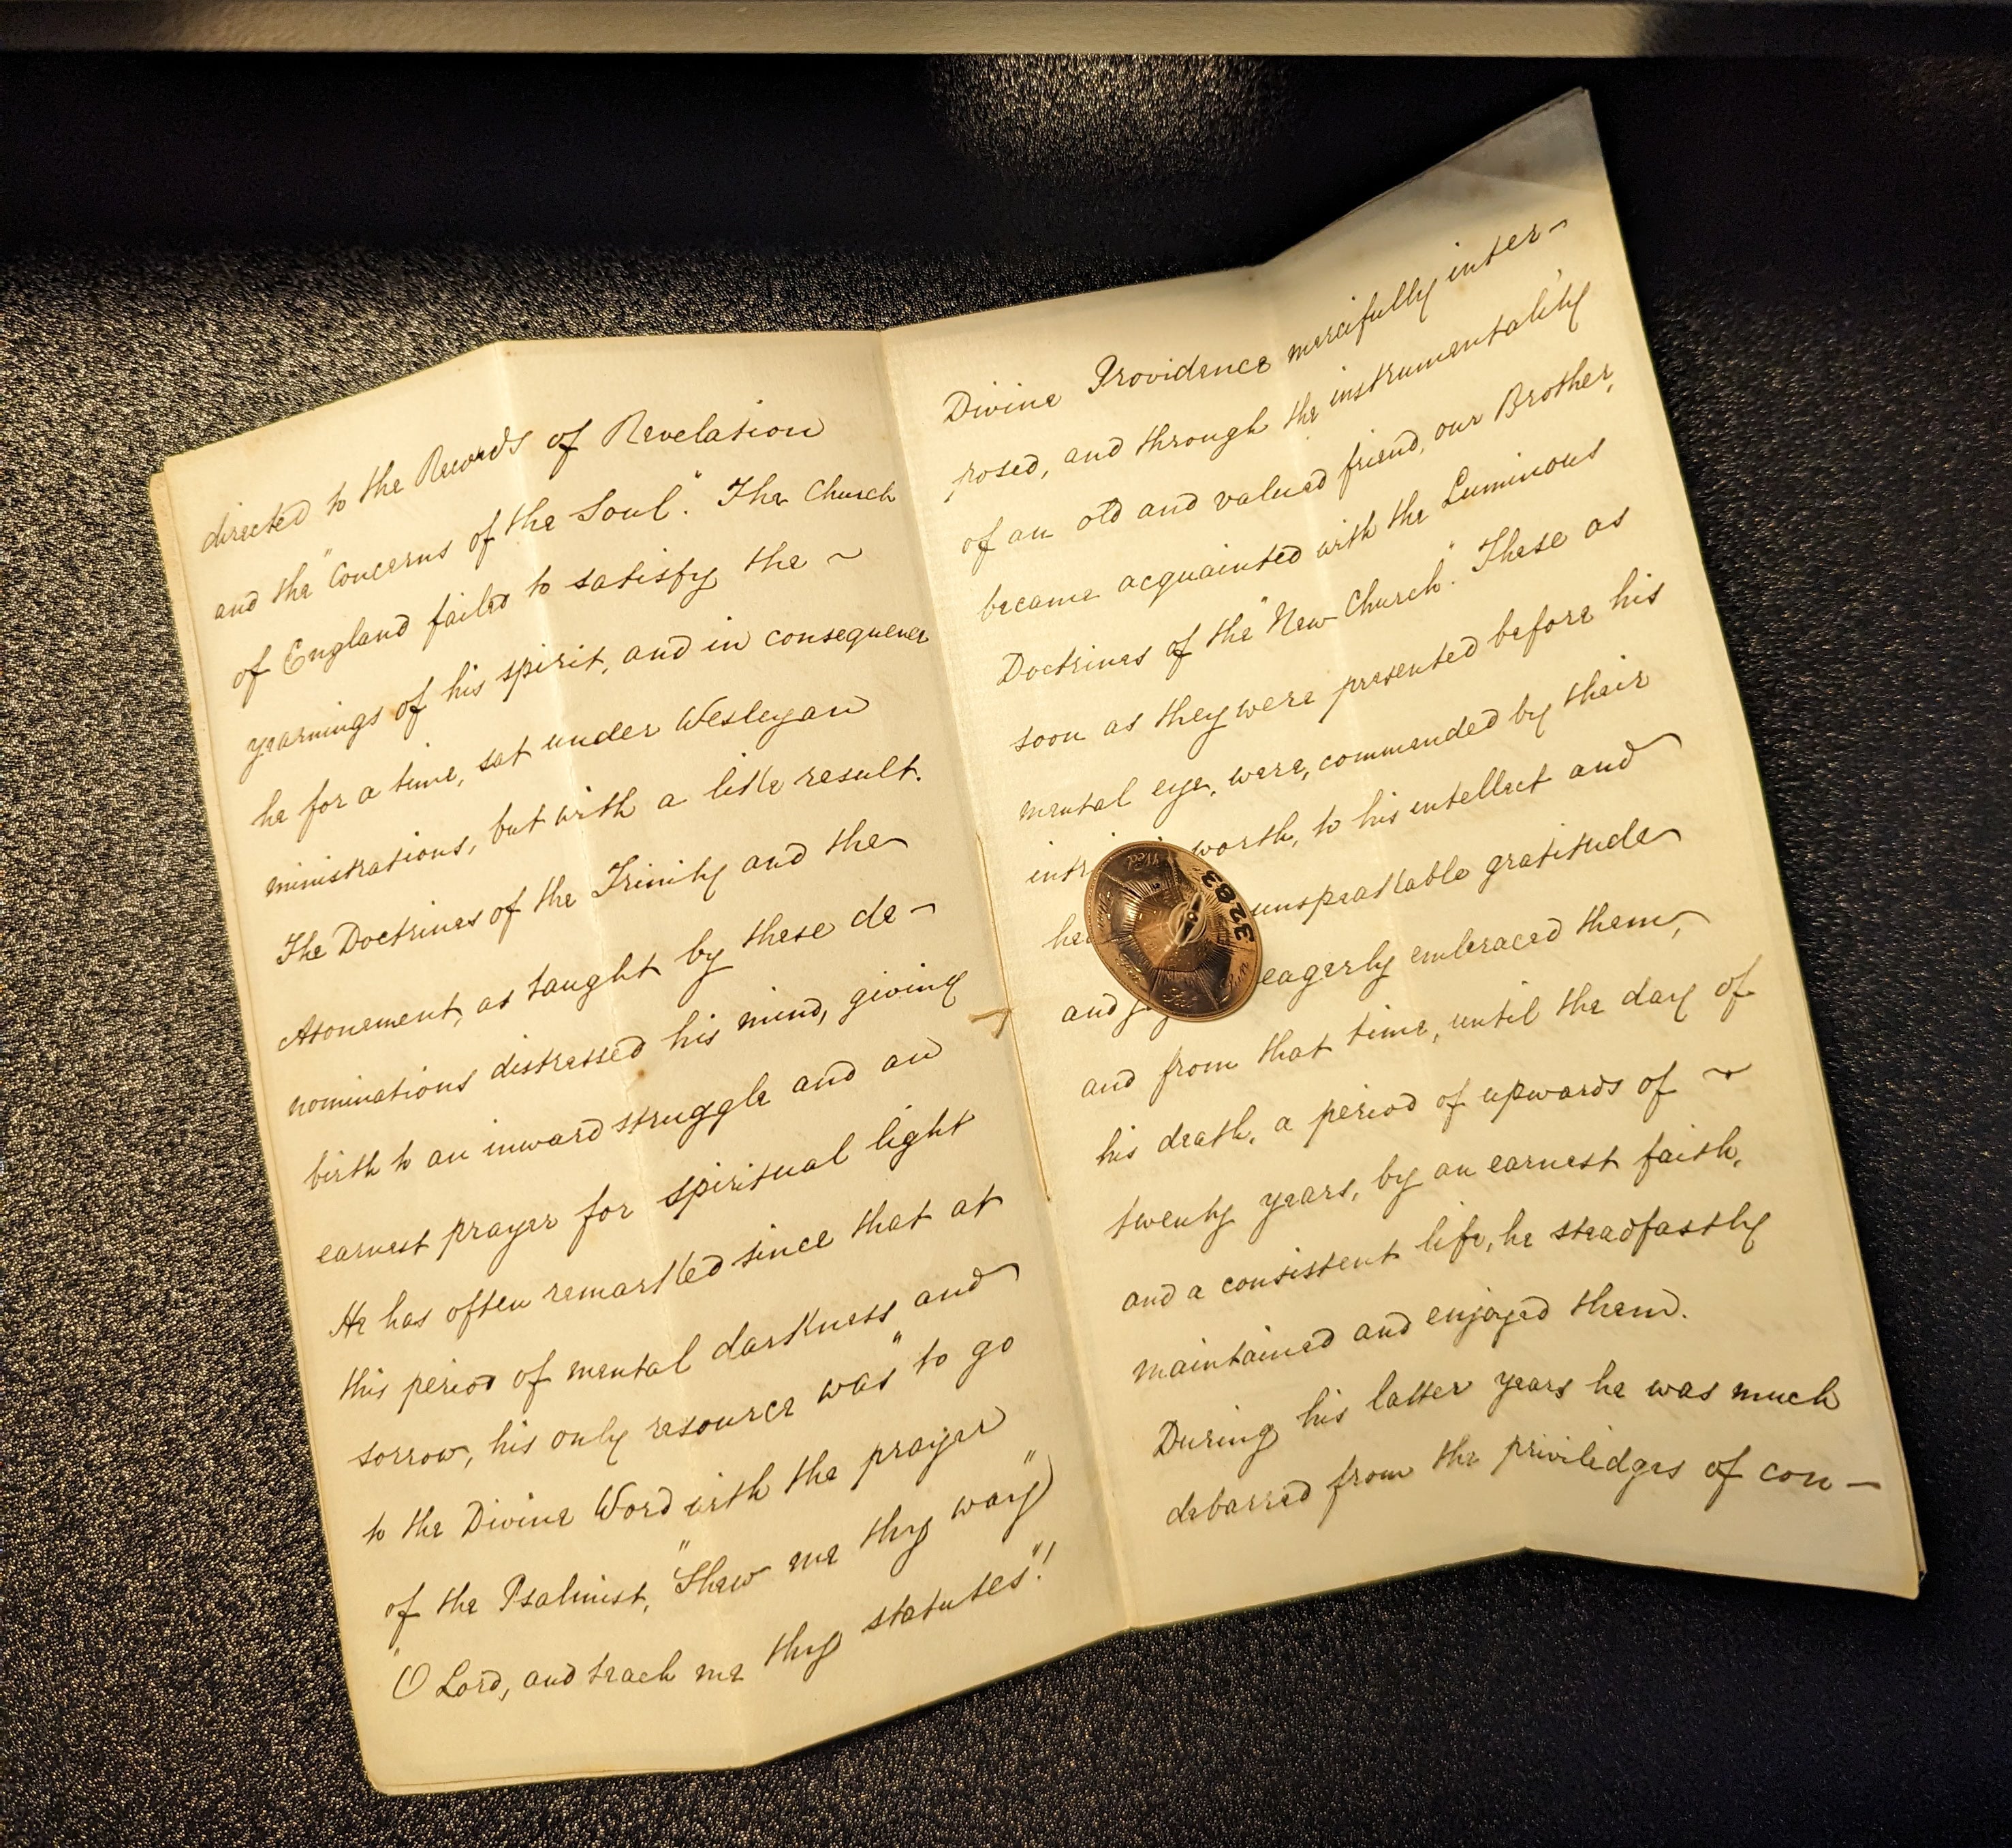 directed to the Records of Revelation
and the "Concerns of the Soul". The Church
of England failed to satisfy the ~
yearnings of his spirit, and in consequence
he for a time, sat under Wesleyan
ministrations, but with a like result.
The Doctrines of the Trinity and the
Atonement, as taught by these de-
nominations distressed his mind, giving
birth to an inward struggle and an
earnest prayer for spiritual light
He has often remarked since that at
this period of mental darkness and
sorrow, his only resource was "to go
to the Divine Word with the prayer
of the Psalmist, "Shew me thy way")
"O Lord, and teach me thy statutes"!
Divine Providence mercifully inter-
posed, and through the instrumentality
of an old and valued friend, our Brother,
became acquainted with the Luminous
Doctrines of the "New Church". These as
soon as they were presented before his
mental eye, were, commended by their
worth, to his intellect and
unspeakable gratitude
and eagerly embraced them,
and from that time, until the day of
his death, a period of upwards of ~
twenty years, by an earnest faith,
and a consistent life, he steadfastly
maintained and enjoyed them.
During his latter years he was much
debarred from the priviledges of con-
3283
Wed